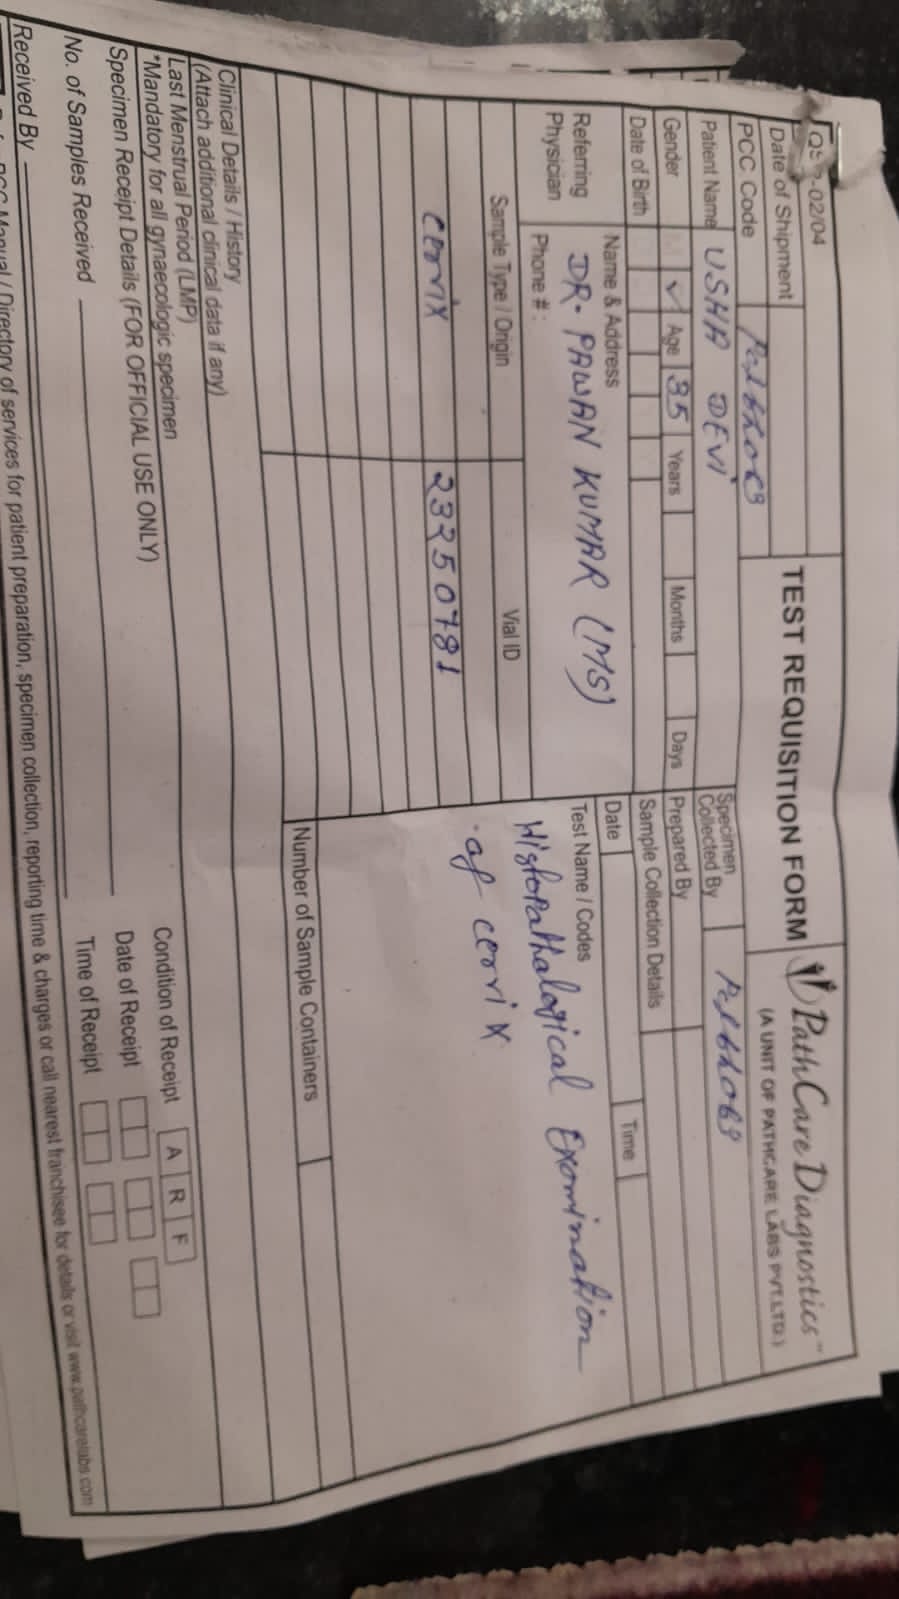 -02/04
TEST REQUISITION FORM
PathCare Diagnostics™
(A UNIT OF PATHCARE LABS PVT.LTD.)
Date of Shipment
PCC Code
Patient Name USHA DEVI
Specimen
Collected By
Gender M ✓ Age 35 Years Months Days
Prepared By
Date of Birth
Sample Collection Details
Date Time
Referring
Physician
Name & Address
DR. PAWAN KUMAR (MS)
Phone # :
Test Name / Codes
Histopathological Examination
of cervix
Sample Type / Origin Vial ID
cervix 23250781
Number of Sample Containers
Clinical Details / History
(Attach additional clinical data if any)
Last Menstrual Period (LMP)
*Mandatory for all gynaecologic specimen
Specimen Receipt Details (FOR OFFICIAL USE ONLY)
Condition of Receipt A R F
No. of Samples Received
Date of Receipt
Time of Receipt
Received By
Manual / Directory of services for patient preparation, specimen collection, reporting time & charges or call nearest franchisee for details or visit www.pathcarelabs.com